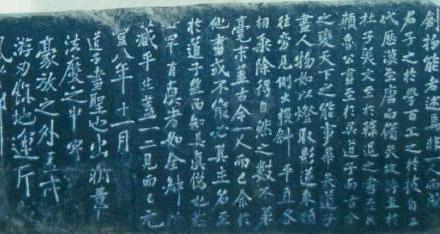 創物能者述焉非一人而成
君子之於學百工之於技自三
代歷漢至唐而備矣故詩至於
杜子美文至於韓退之書至於
顏魯公畫至於吳道子而古今
之變天下之能事畢矣道子
畫人物如以燈取影逆來順
往旁見側出橫斜平直各
相乘除得自然之數不差
毫末蓋古今一人而已余於
他畫或不能必其主名至
於道子望而知其真偽也
罕有真者如全叔
藏平生蓋一二見而已元
豐八年十一月
道子畫聖也出新意
法度之中寄
豪放之外蓋所
游刃餘地運斤
成風